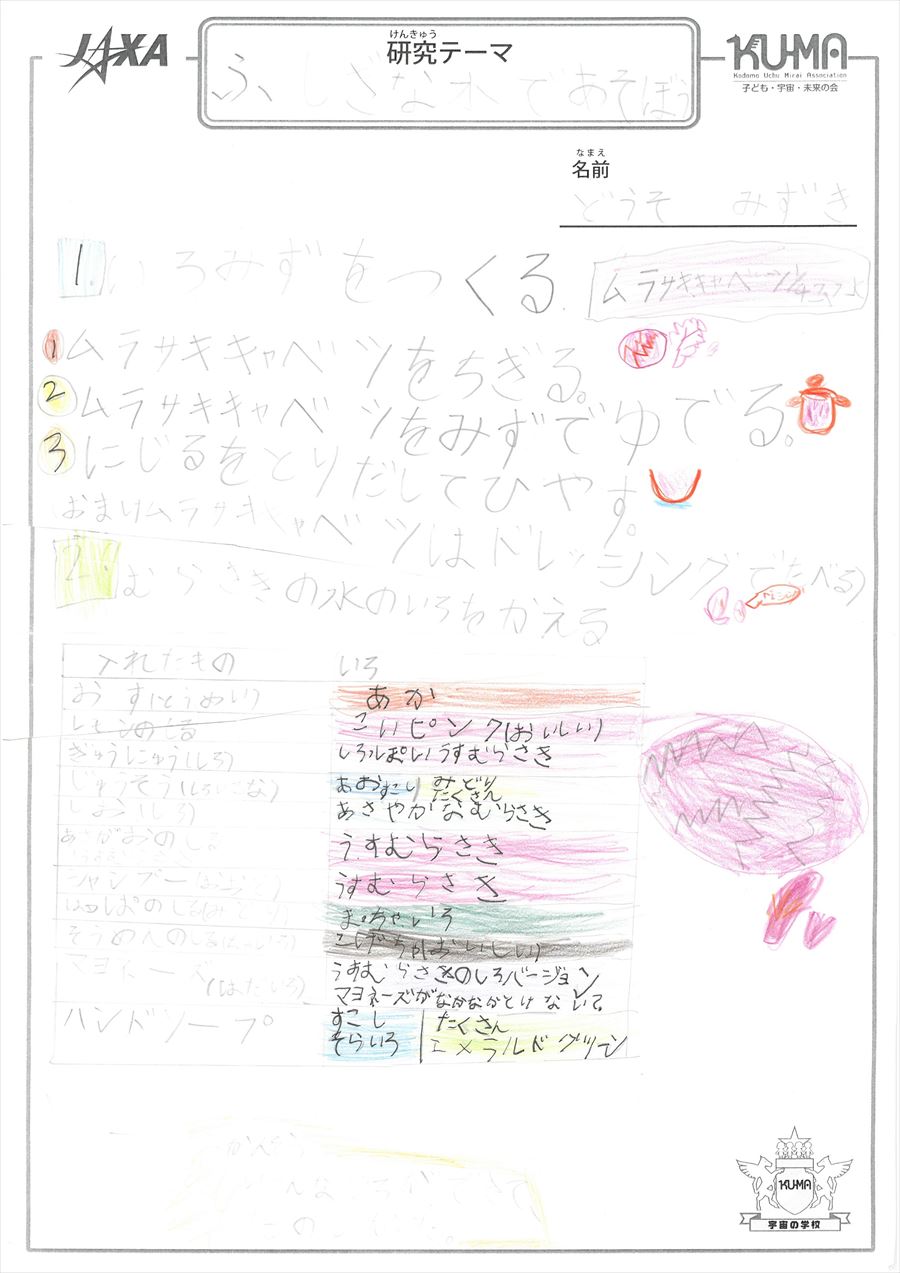 JAXA
けんきゅう
研究テーマ
KU-MA
Kodomo Uchu Mirai Association
子ども・宇宙・未来の会
ふしぎな水であそぼう
なまえ
名前
どうそ みずき
1. いろみずをつくる.
ムラサキキャベツ1/4こ
① ムラサキキャベツをちぎる。
② ムラサキキャベツをみずでゆでる。
③ にじるをとりだしてひやす。
おまけムラサキキャベツはドレッシングでたべる)
2. むらさきの水のいろをかえる
入れたもの いろ
おす(とうめい) あか
レモンのしる こいピンク(おいしい)
ぎゅうにゅう(しろ) しろっぽいうすむらさき
じゅうそう(しろいこな) あおすこし みどりたくさん
お(しろ) あざやかなむらさき
あさがおのしる うすむらさき
シャンプー うすむらさき
はっぱのしる(みどり) まっちゃいろ
そうめんのしる こげちゃ(おいしい)
マヨネーズ(はだいろ) うすむらさきのしろバージョン
マヨネーズがなかなかとけないで。
ハンドソープ すこし たくさん
そらいろ エメラルドグリーン
KU-MA
宇宙の学校